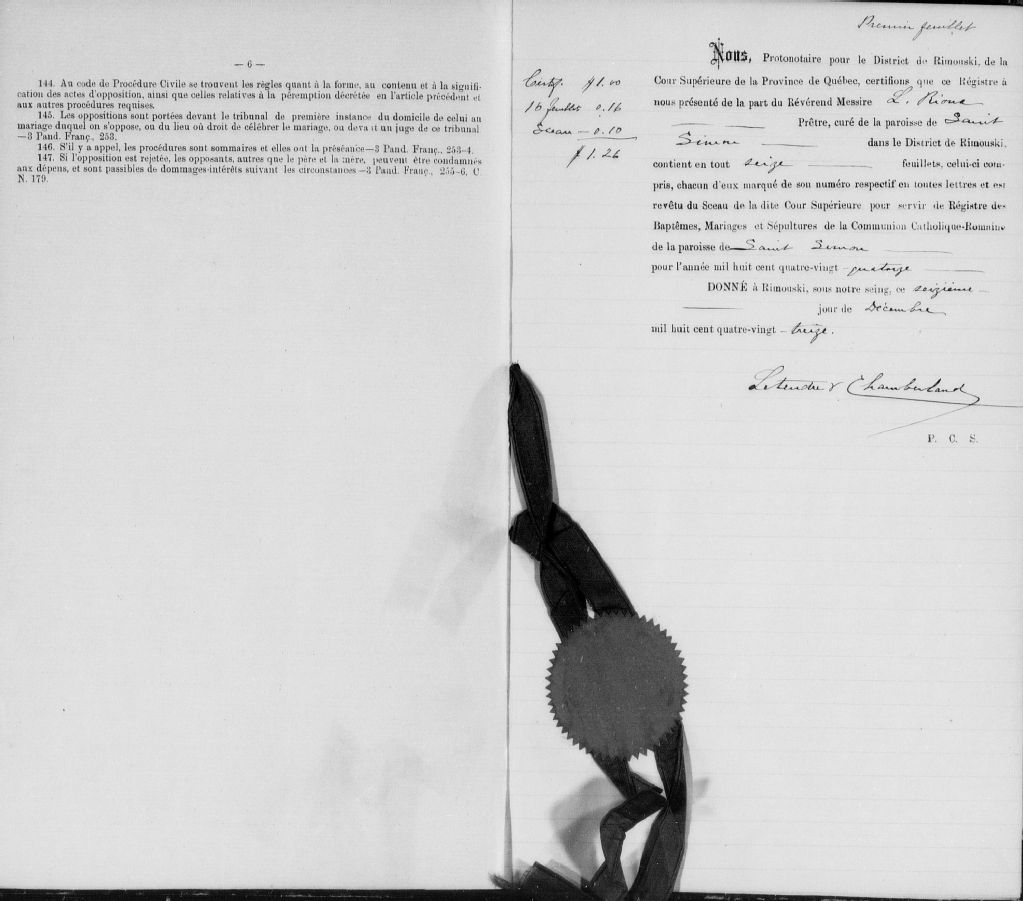 — 6 —
144. Au code de Procédure Civile se trouvent les règles quant à la forme, au contenu et à la signifi-
cation des actes d'opposition, ainsi que celles relatives à la péremption décrétée en l'article précédent et
aux autres procédures requises.
145. Les oppositions sont portées devant le tribunal de première instance du domicile de celui au
mariage duquel on s'oppose, ou du lieu où droit de célébrer le mariage, ou devant un juge de ce tribunal
—3 Pand. Franç., 253.
146. S'il y a appel, les procédures sont sommaires et elles ont la préséance—3 Pand. Franç., 253-4.
147. Si l'opposition est rejetée, les opposants, autres que le père et la mère, peuvent être condamnés
aux dépens, et sont passibles de dommages-intérêts suivant les circonstances—3 Pand. Franç., 255-6, C
N. 179.
Premier feuillet
Certif. $1.00
16 feuillets 0.16
Sceau — 0.10
$1.26
Nous, Protonotaire pour le District de Rimouski, de la
Cour Supérieure de la Province de Québec, certifions que ce Régistre à
nous présenté de la part du Révérend Messire L. Rioux
Prêtre, curé de la paroisse de Saint
Simon — dans le District de Rimouski,
contient en tout seize feuillets, celui-ci com-
pris, chacun d'eux marqué de son numéro respectif en toutes lettres et est
revêtu du Sceau de la dite Cour Supérieure pour servir de Régistre des
Baptêmes, Mariages et Sépultures de la Communion Catholique-Romaine
de la paroisse de Saint Simon
pour l'année mil huit cent quatre-vingt-quatorze
DONNÉ à Rimouski, sous notre seing, ce seizième
jour de Décembre
mil huit cent quatre-vingt-treize.
Letendre & Chamberland
P. C. S.